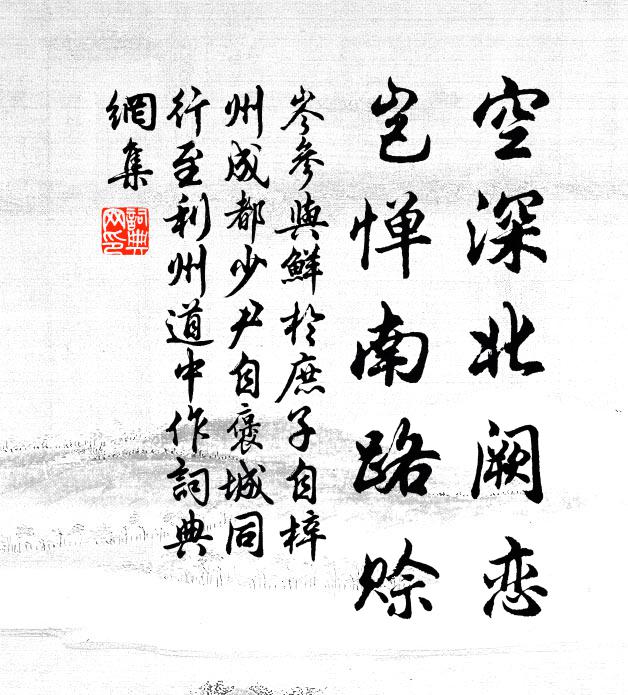 空深北阙恋
岂惮南路赊
岑參與鮮於庶子自梓
州成都少尹自褒城同
行至利州道中作詞典
網集
詞典
网印